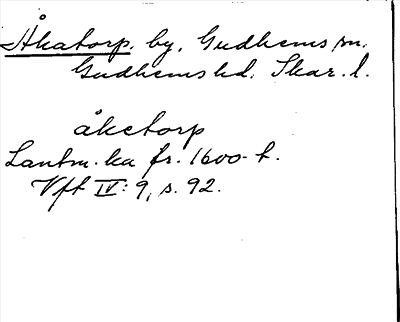 Åkatorp. by, Gudhems sn.
Gudhems hd. Skar. l.
åketorp
Lantm. ka fr. 1600-t.
Vft IV: 9, s. 92.